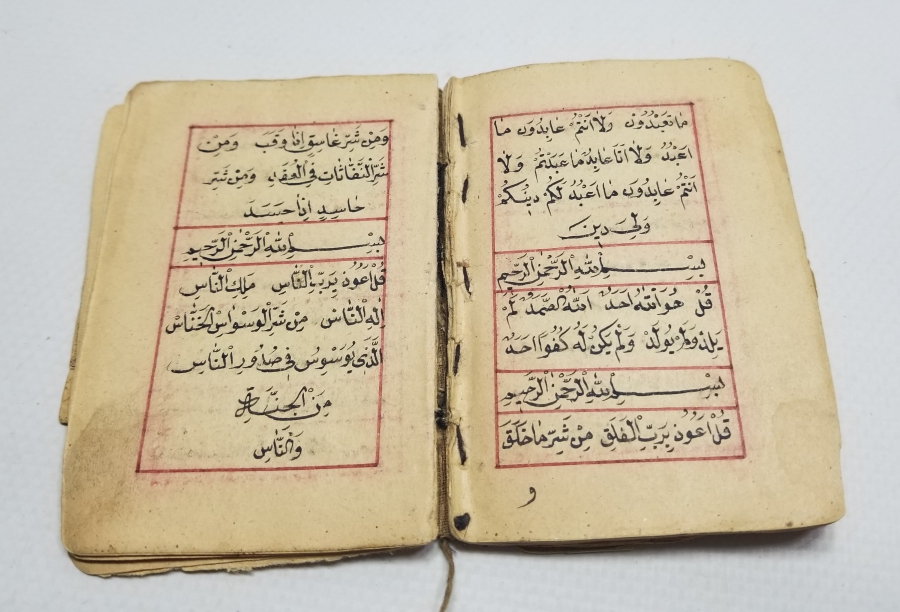 ما تعبدون ولا انتم عابدون ما
اعبد ولا انا عابد ما عبدتم ولا
انتم عابدون ما اعبد لكم دينكم
ولي دين
بسم الله الرحمن الرحيم
قل هو الله احد الله الصمد لم
يلد ولم يولد ولم يكن له كفوا احد
بسم الله الرحمن الرحيم
قل اعوذ برب الفلق من شر ما خلق
و
ومن شر غاسق اذا وقب ومن
شر النفاثات في العقد ومن شر
حاسد اذا حسد
بسم الله الرحمن الرحيم
قل اعوذ برب الناس ملك الناس
اله الناس من شر الوسواس الخناس
الذي يوسوس في صدور الناس
من الجنة
والناس